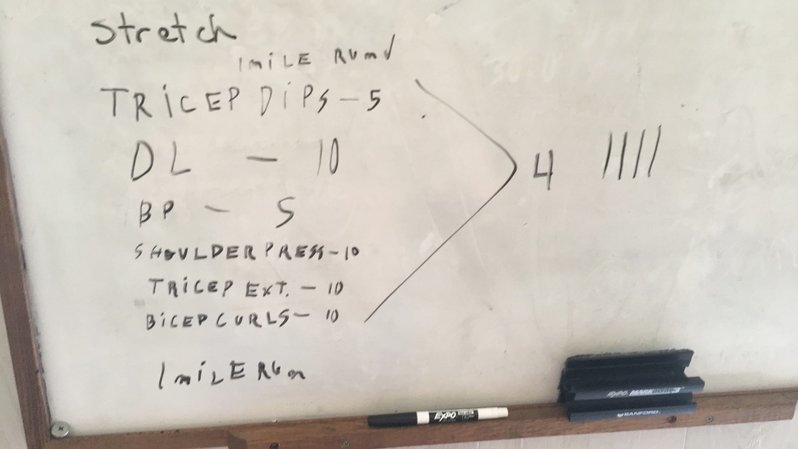 Stretch
1 MiLE RUN √
TRiCEP DiPS - 5
DL - 10
BP - 5
SHOULDER PRESS - 10
TRiCEP EXT. - 10
BiCEP CURLS - 10
4 ||||
1 MiLE RUn
EXPO
EXPO MARK
SANFORD